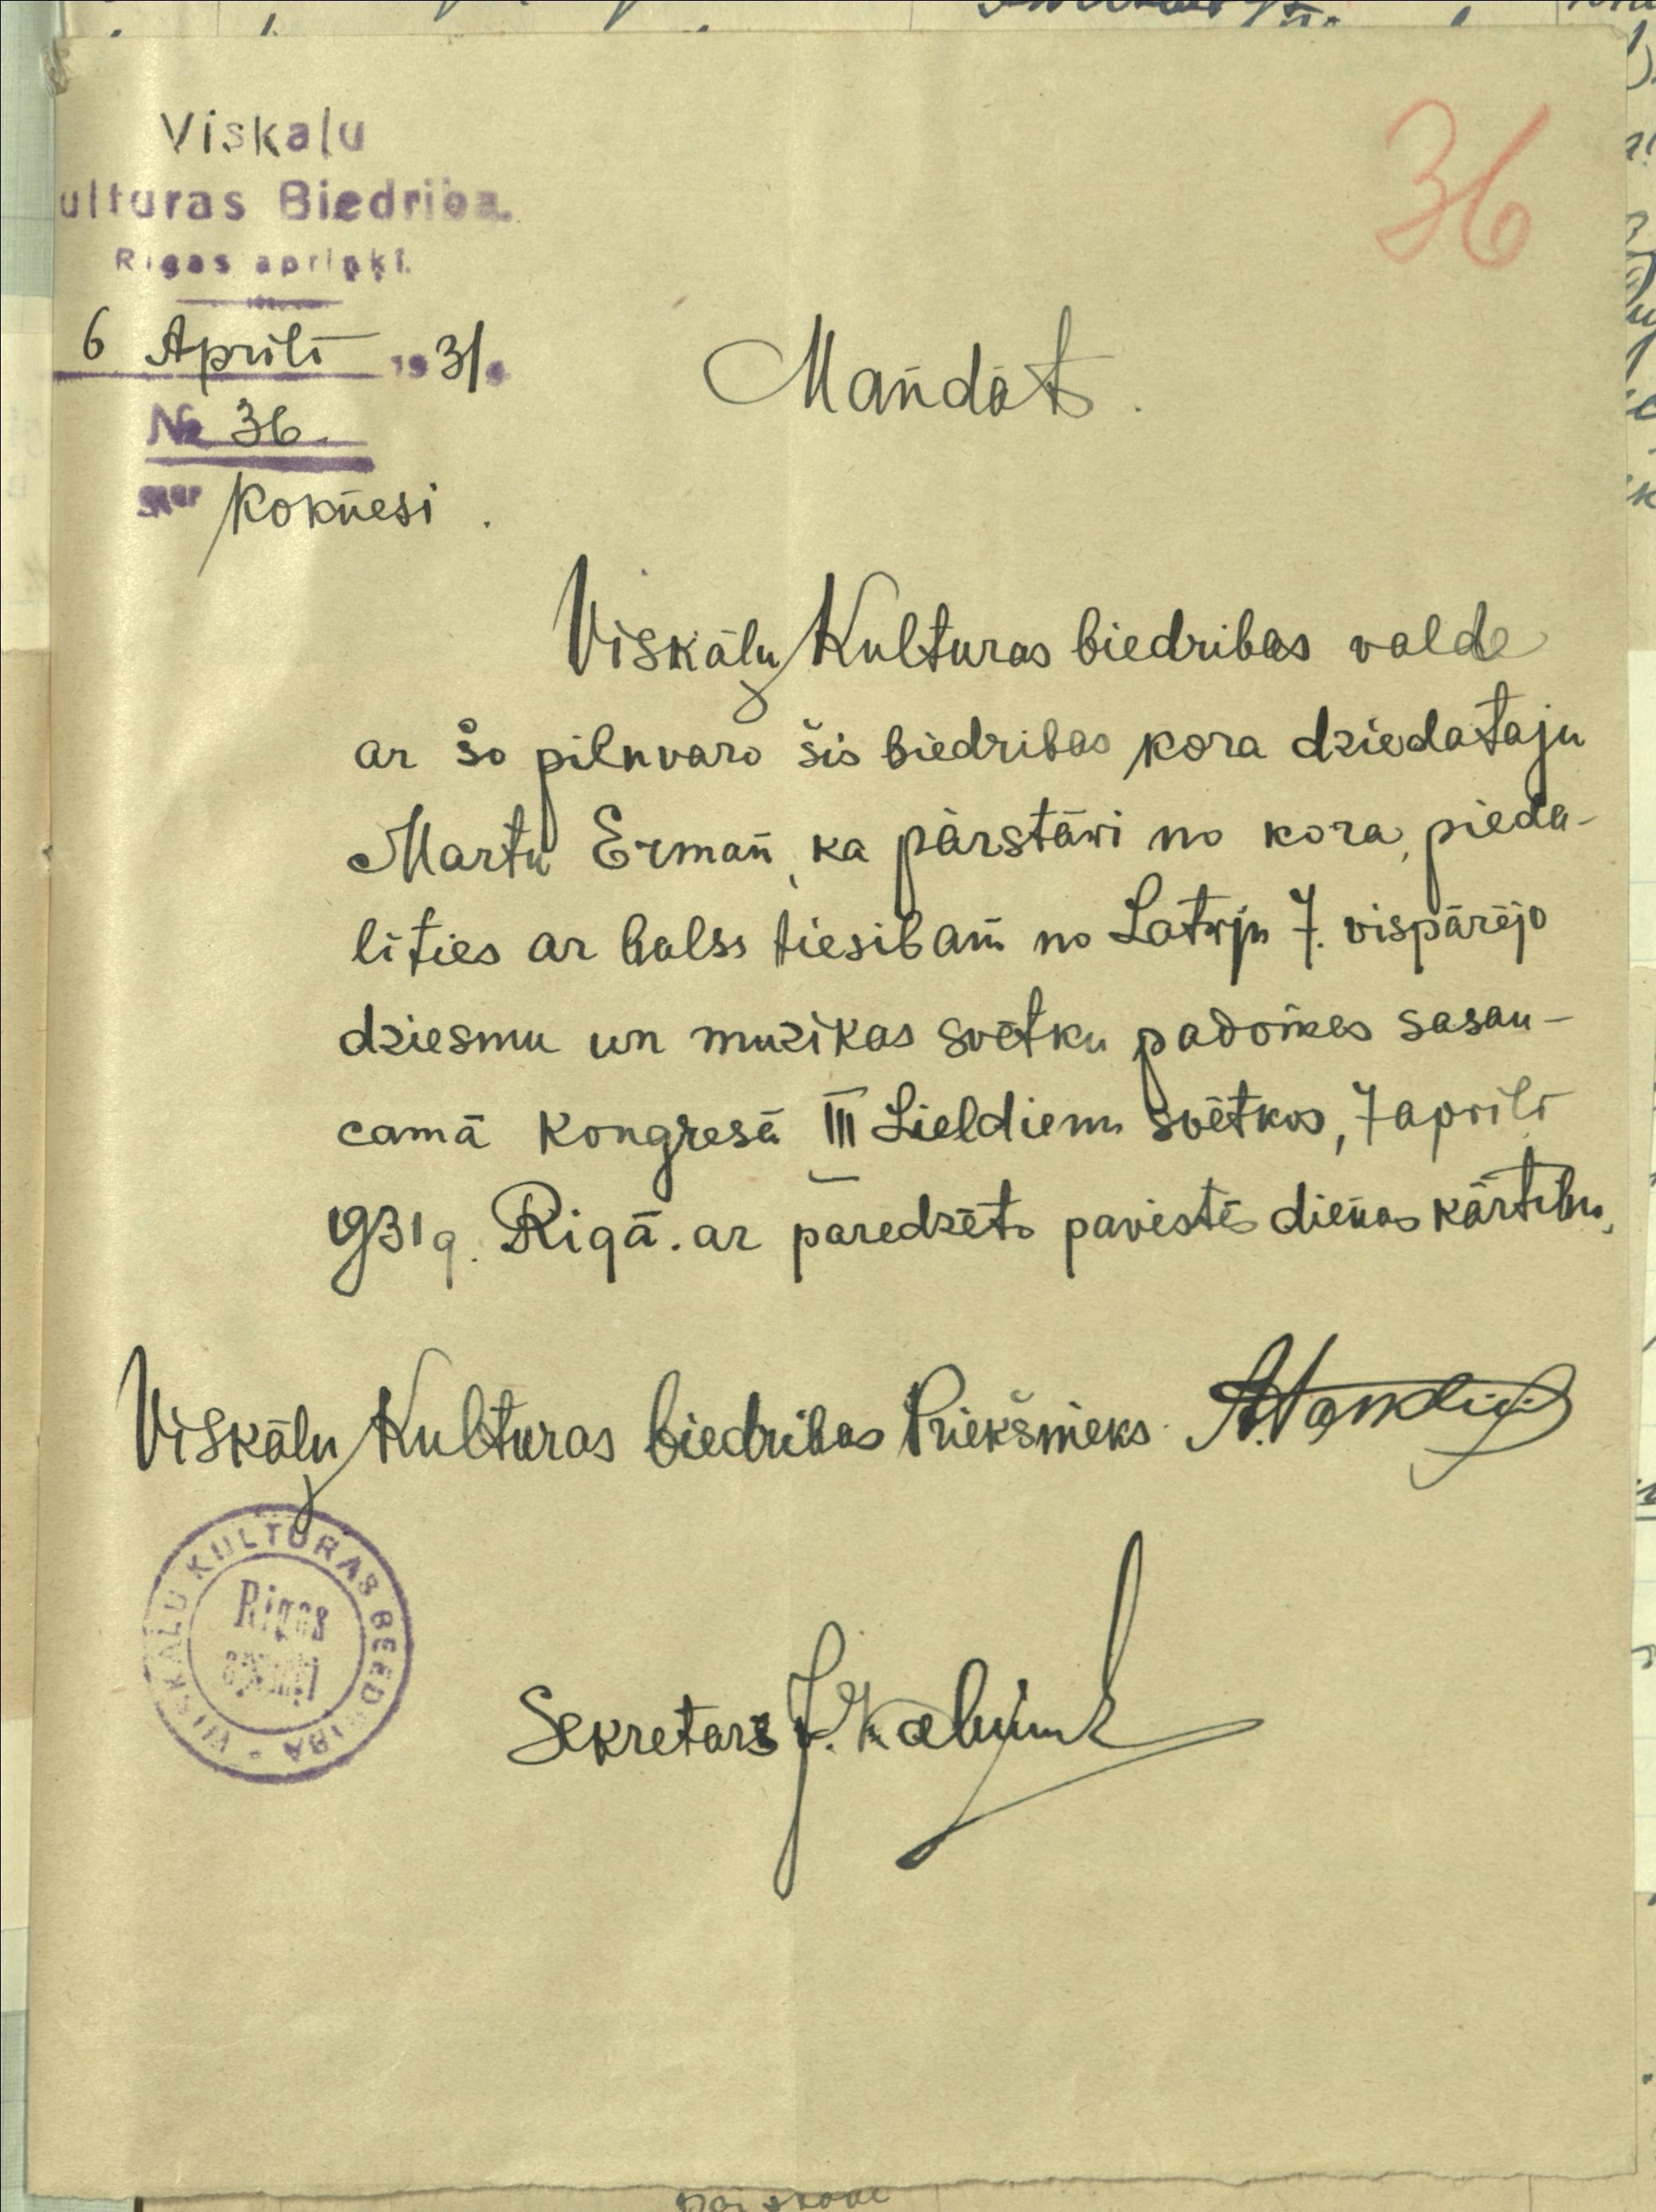 36
Viskaļu
ulturas Biedriba.
Rigas apriņķī.
6 Aprilī 1931.
№ 36.
caur Koknesi.
Mandāts.
Viskāļu Kulturas biedribas valde
ar šo pilnvaro šis biedribas kora dziedataju
Martu Erman̄, ka pārstāvi no kora, pieda-
lities ar balss tiesibam̄ no Latvju 7. vispārējo
dziesmu un muzikas svētku padomes sasau-
camā Kongresā III Lieldienu svētkos, 7 aprilī
1931 g. Rigā. ar paredzēto pavēstēs dienas kārtibu.
Viskāļu Kulturas biedribas Priekšnieks
VIISKAĻU KULTURAS BEEDRIBA
Rigas
apriņķī
Sekretars